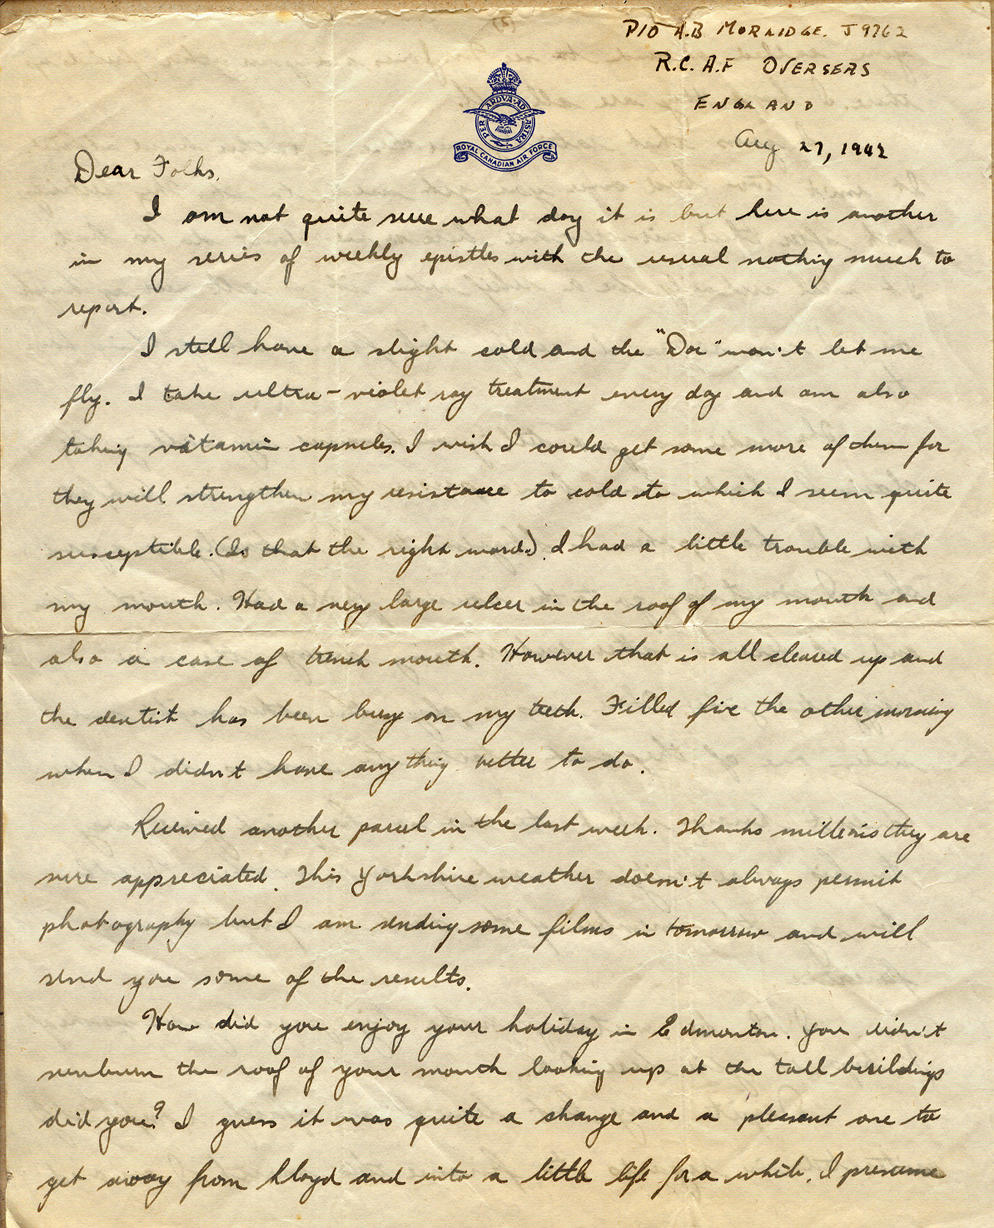 P/O A.B MORRIDGE. J9762
R.C.A.F OVERSERS
ENGLAND
Aug 27, 1942
PER ARDVA AD ASTRA
ROYAL CANADIAN AIR FORCE
Dear Folks,
I am not quite sure what day it is but here is another
in my series of weekly epistles with the usual nothing much to
report.
I still have a slight cold and the "Doc" won't let me
fly. I take ultra-violet ray treatment every day and am also
taking vitamin capsules. I wish I could get some more of them for
they will strengthen my resistance to cold to which I seem quite
susceptible. (Is that the right word.) I had a little trouble with
my mouth. Had a very large ulcer in the roof of my mouth and
also a case of trench mouth. However that is all cleared up and
the dentist has been busy on my teeth. Filled five the other morning
when I didn't have anything better to do.
Received another parcel in the last week. Thanks they are
sure appreciated. This Yorkshire weather doesn't always permit
photography but I am sending some films in tomorrow and will
send you some of the results.
How did you enjoy your holiday in Edmonton. You didn't
sunburn the roof of your mouth looking up at the tall buildings
did you? I guess it was quite a change and a pleasant one to
get away from Lloyd and into a little life for a while. I presume